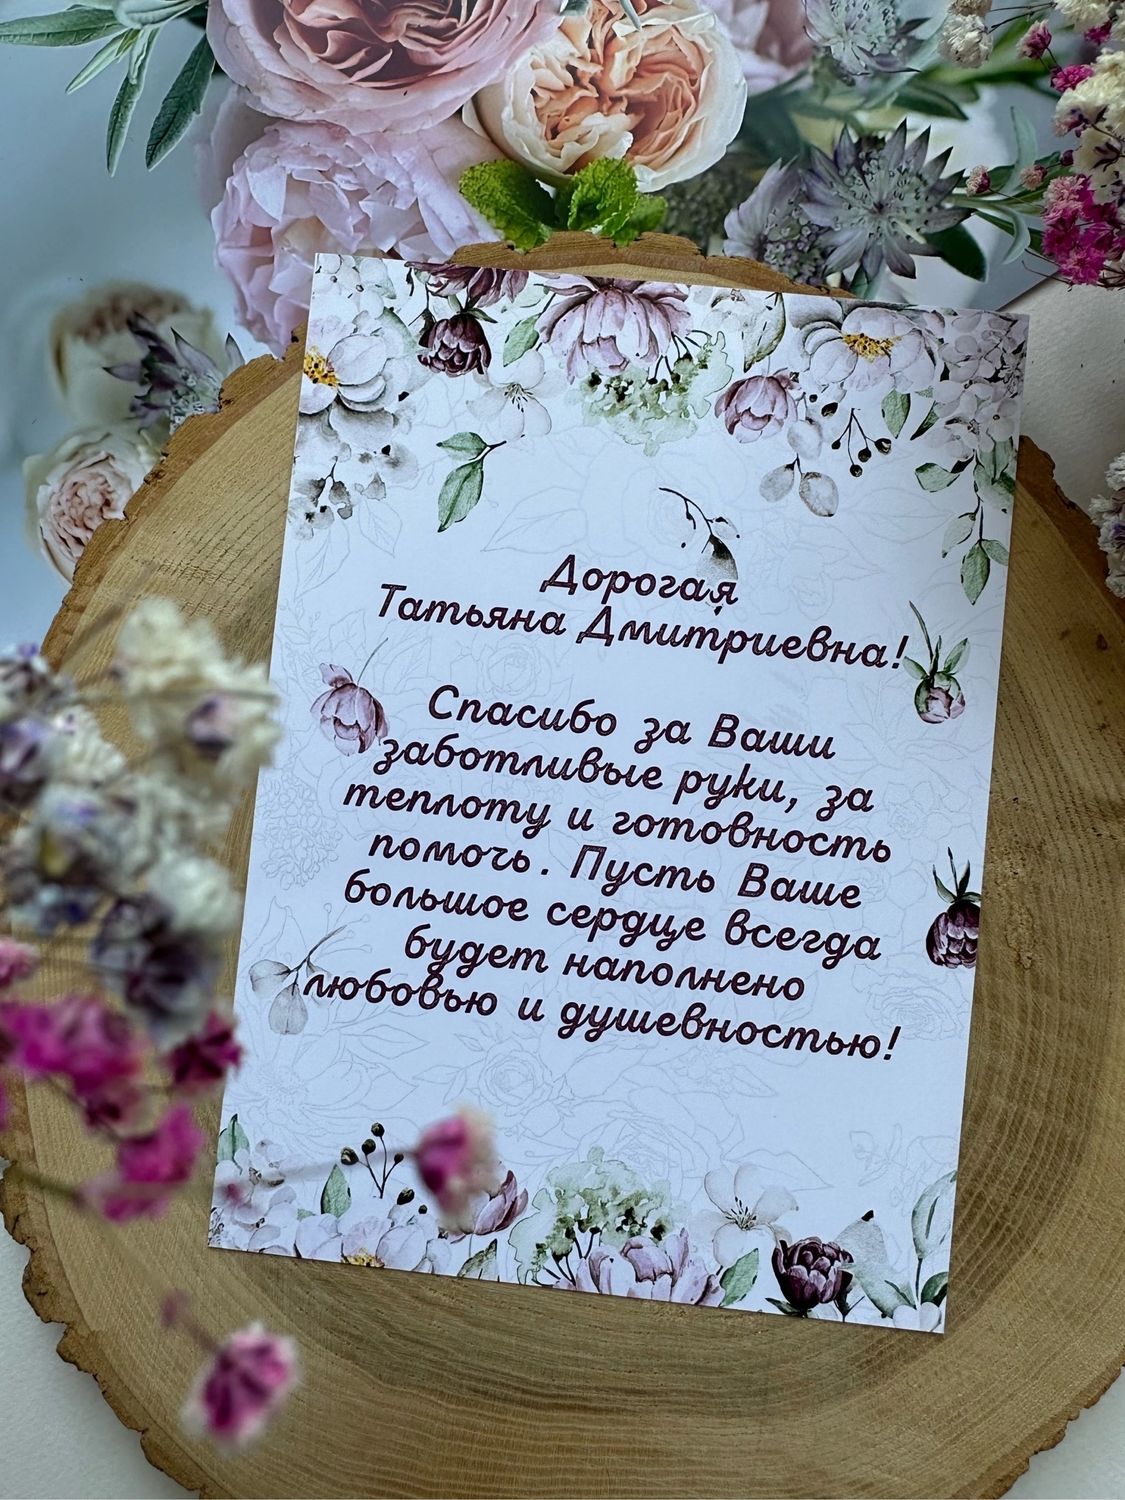 Дорогая
Татьяна Дмитриевна!
Спасибо за Ваши
заботливые руки, за
теплоту и готовность
помочь. Пусть Ваше
большое сердце всегда
будет наполнено
любовью и душевностью!